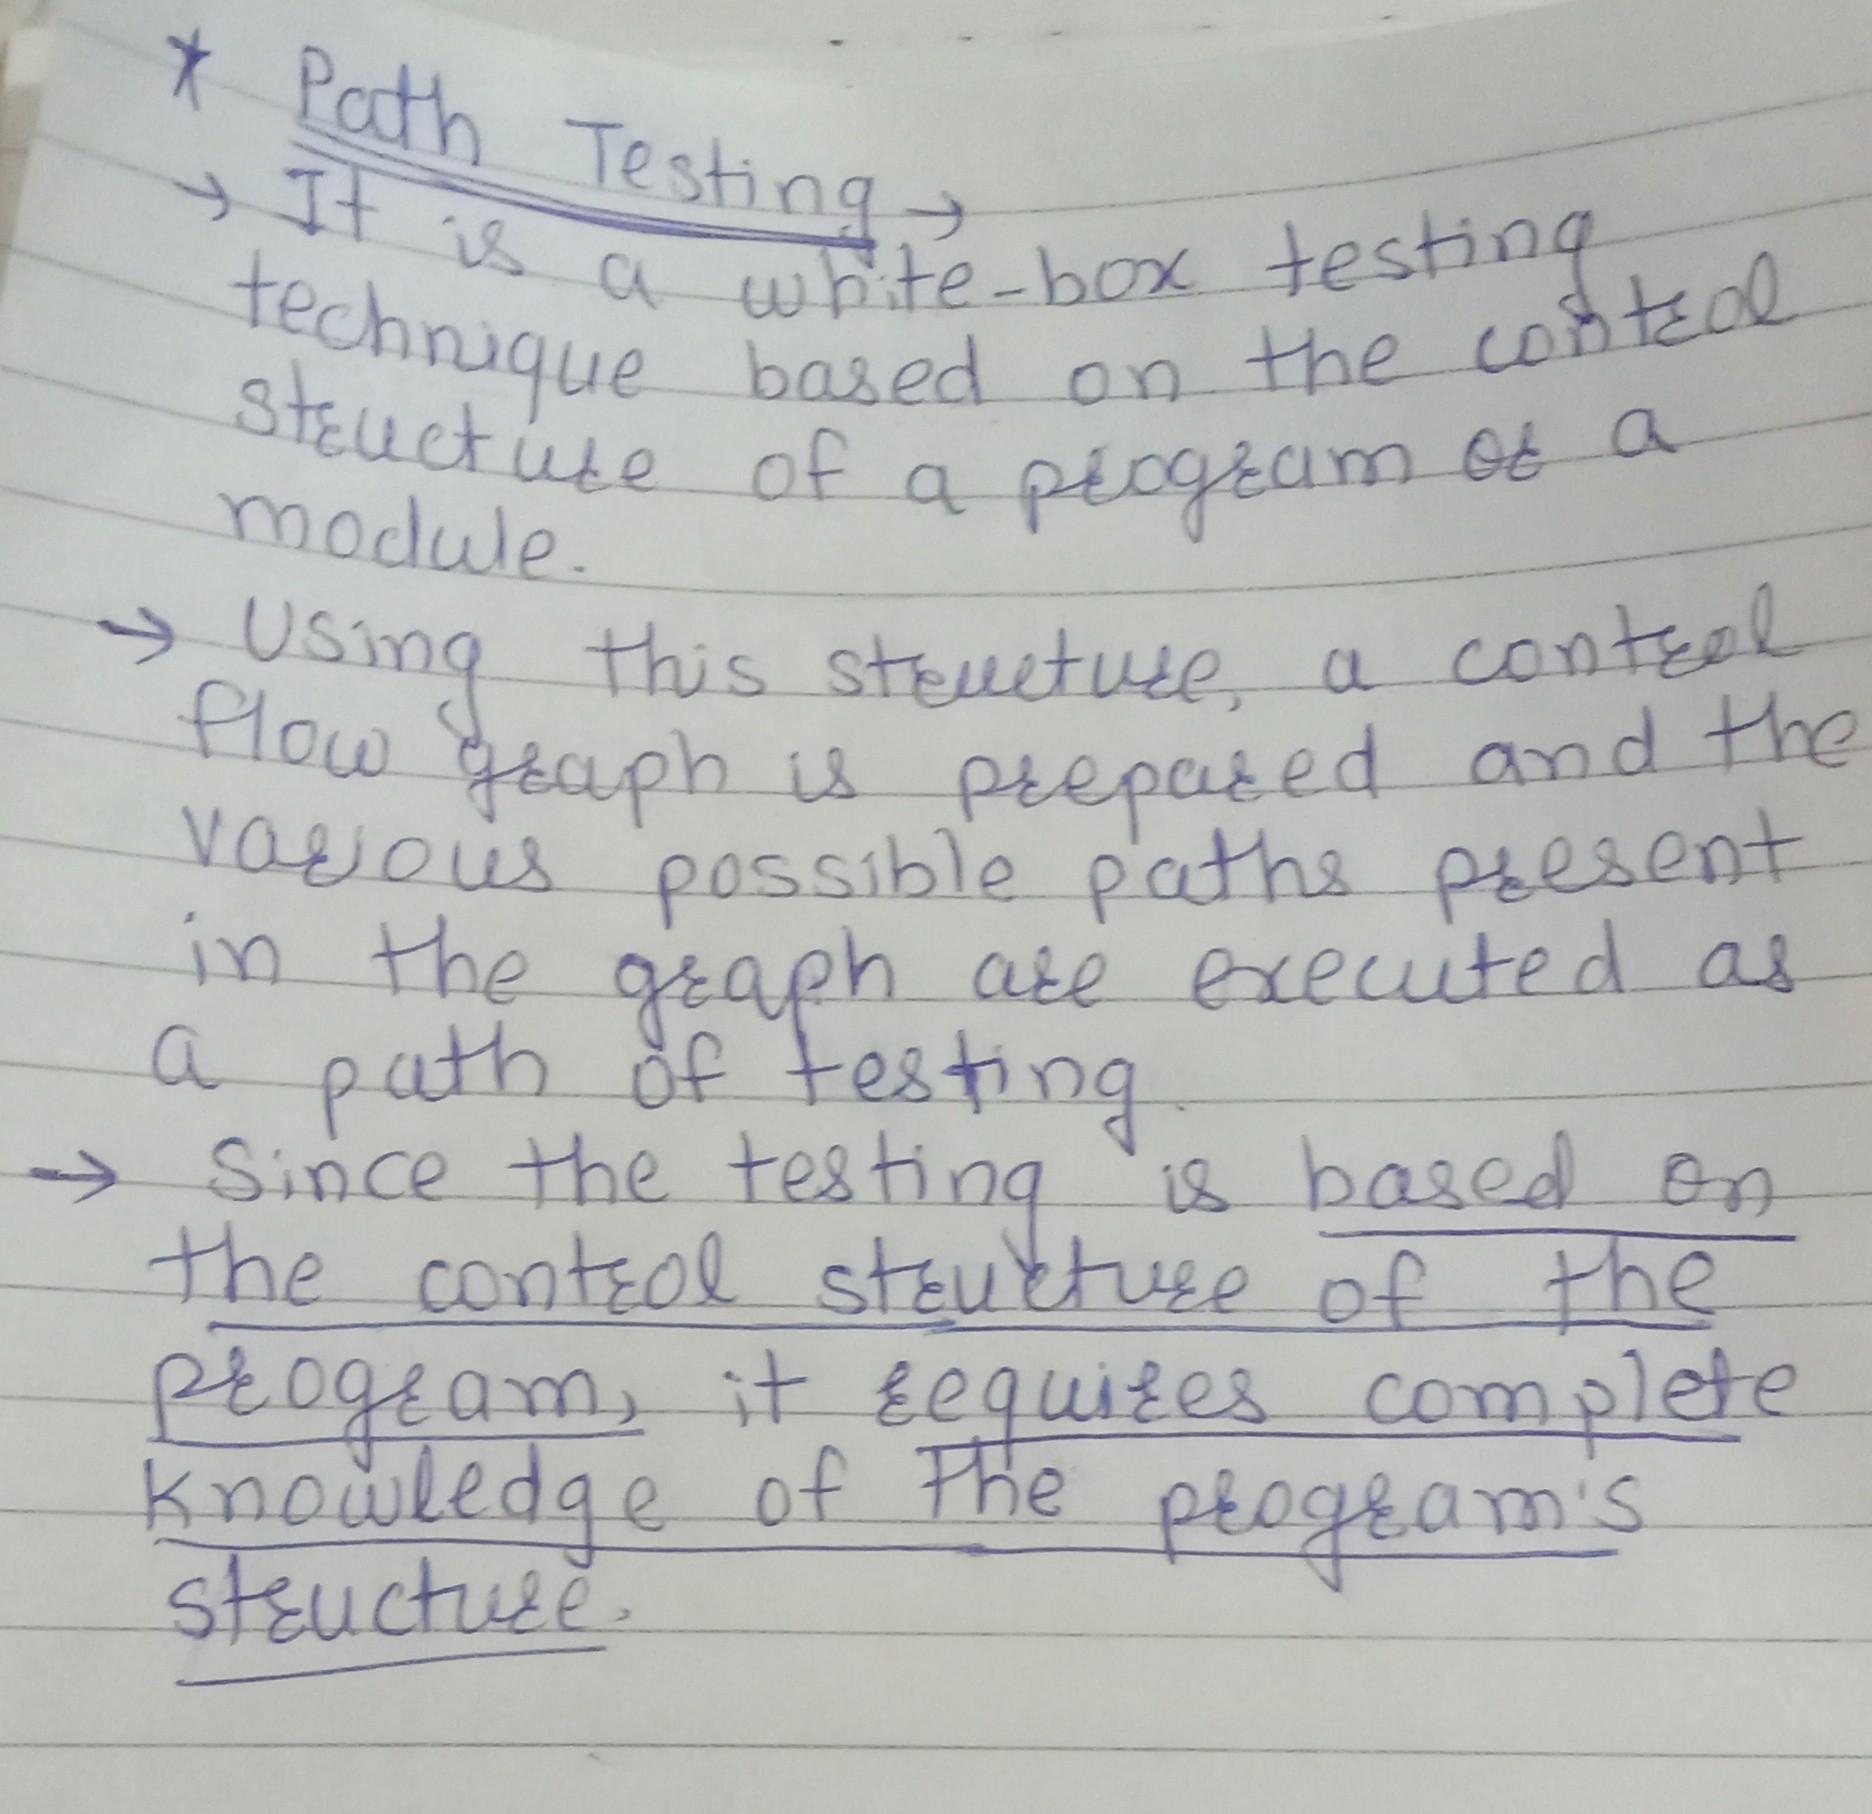 * Path Testing →
→ It is a white-box testing
technique based on the control
structure of a program or a
module.
→ Using this structure, a control
flow graph is prepared and the
various possible paths present
in the graph are executed as
a path of testing.
→ Since the testing is based on
the control structure of the
program, it requires complete
knowledge of the program's
structure.